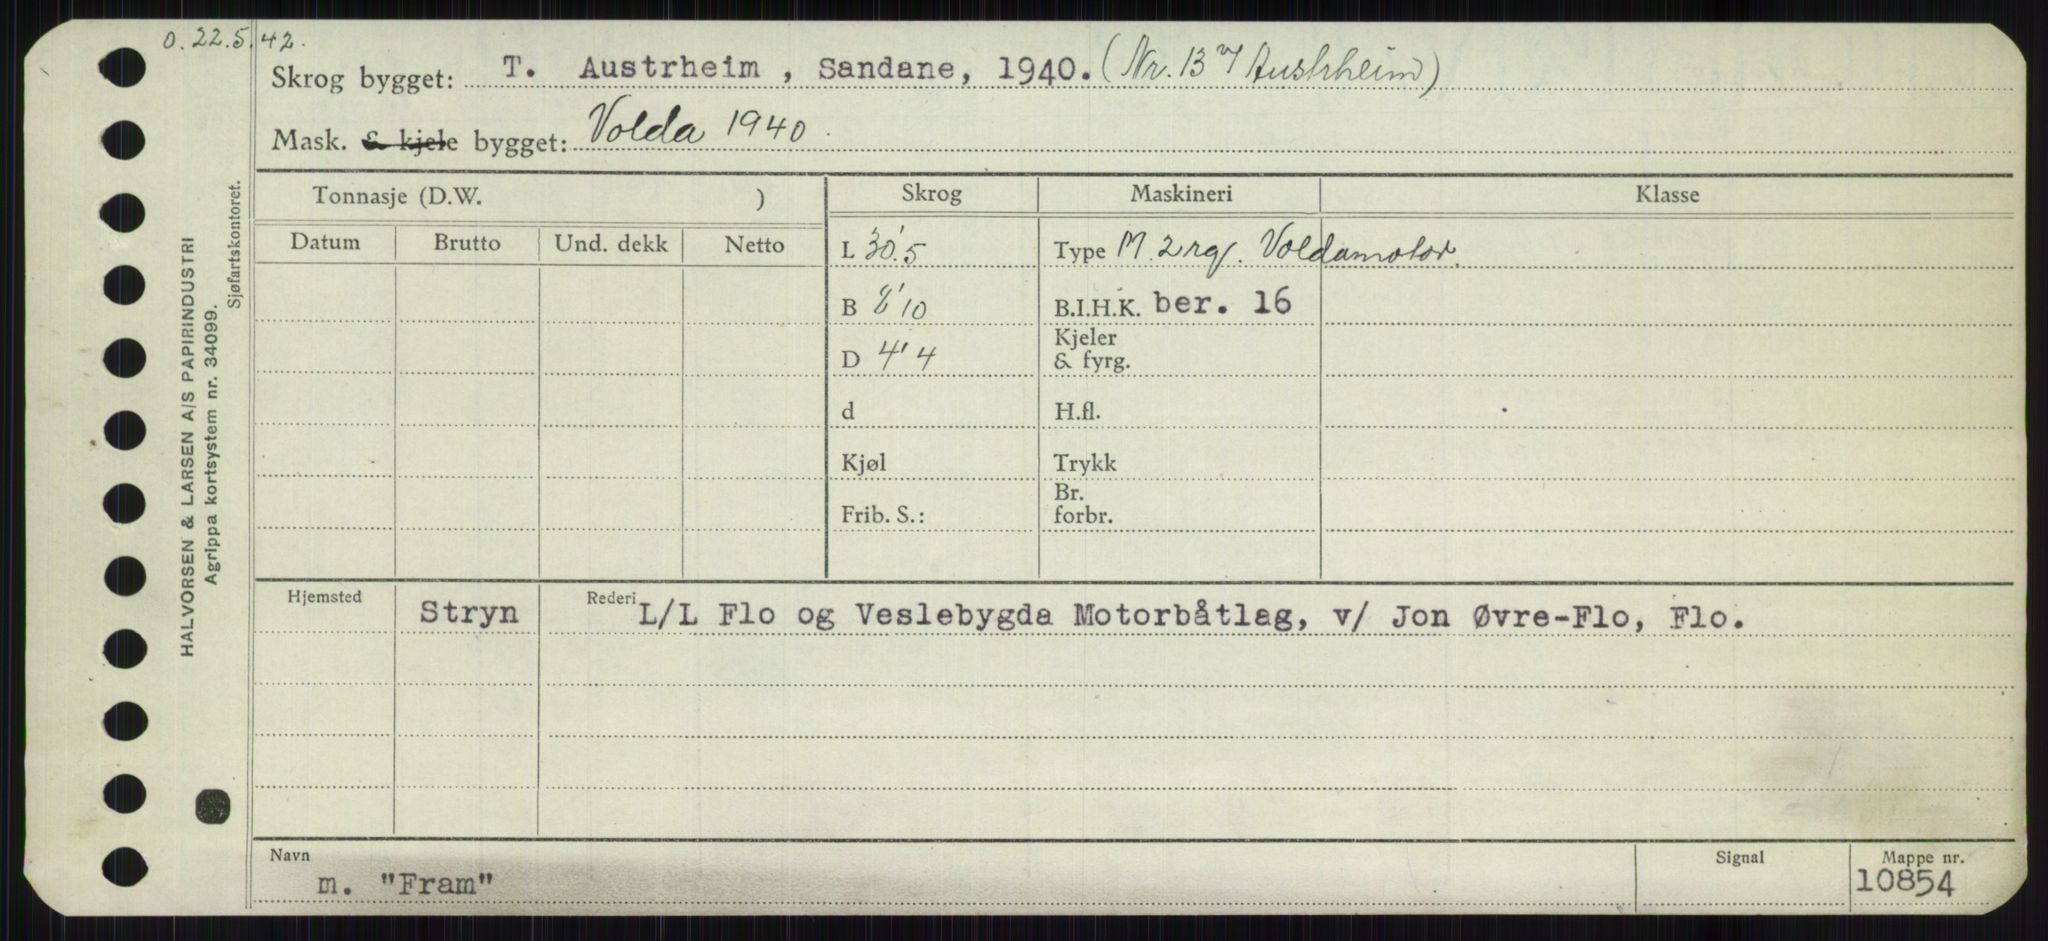 O. 22.5.42.
Skrog bygget: T. Austrheim, Sandane, 1940. (Nr. 13 v/ Austrheim)
Mask. & kjele bygget: Volda 1940.
Tonnasje (D.W. ) Skrog Maskineri Klasse
Datum Brutto Und. dekk Netto
L 30'.5 Type M. 2 rg. Voldamotor.
B 8'10 B.I.H.K. ber. 16
Kjeler
D 4'4 & fyrg.
d H.fl.
Kjøl Trykk
Br.
Frib. S.: forbr.
Hjemsted Stryn Rederi L/L Flo og Veslebygda Motorbåtlag, v/ Jon Øvre-Flo, Flo.
Navn Signal Mappe nr.
m. "Fram" 10854
HALVORSEN & LARSEN A/S PAPIRINDUSTRI
Agrippa kortsystem nr. 34099.
Sjøfartskontoret.